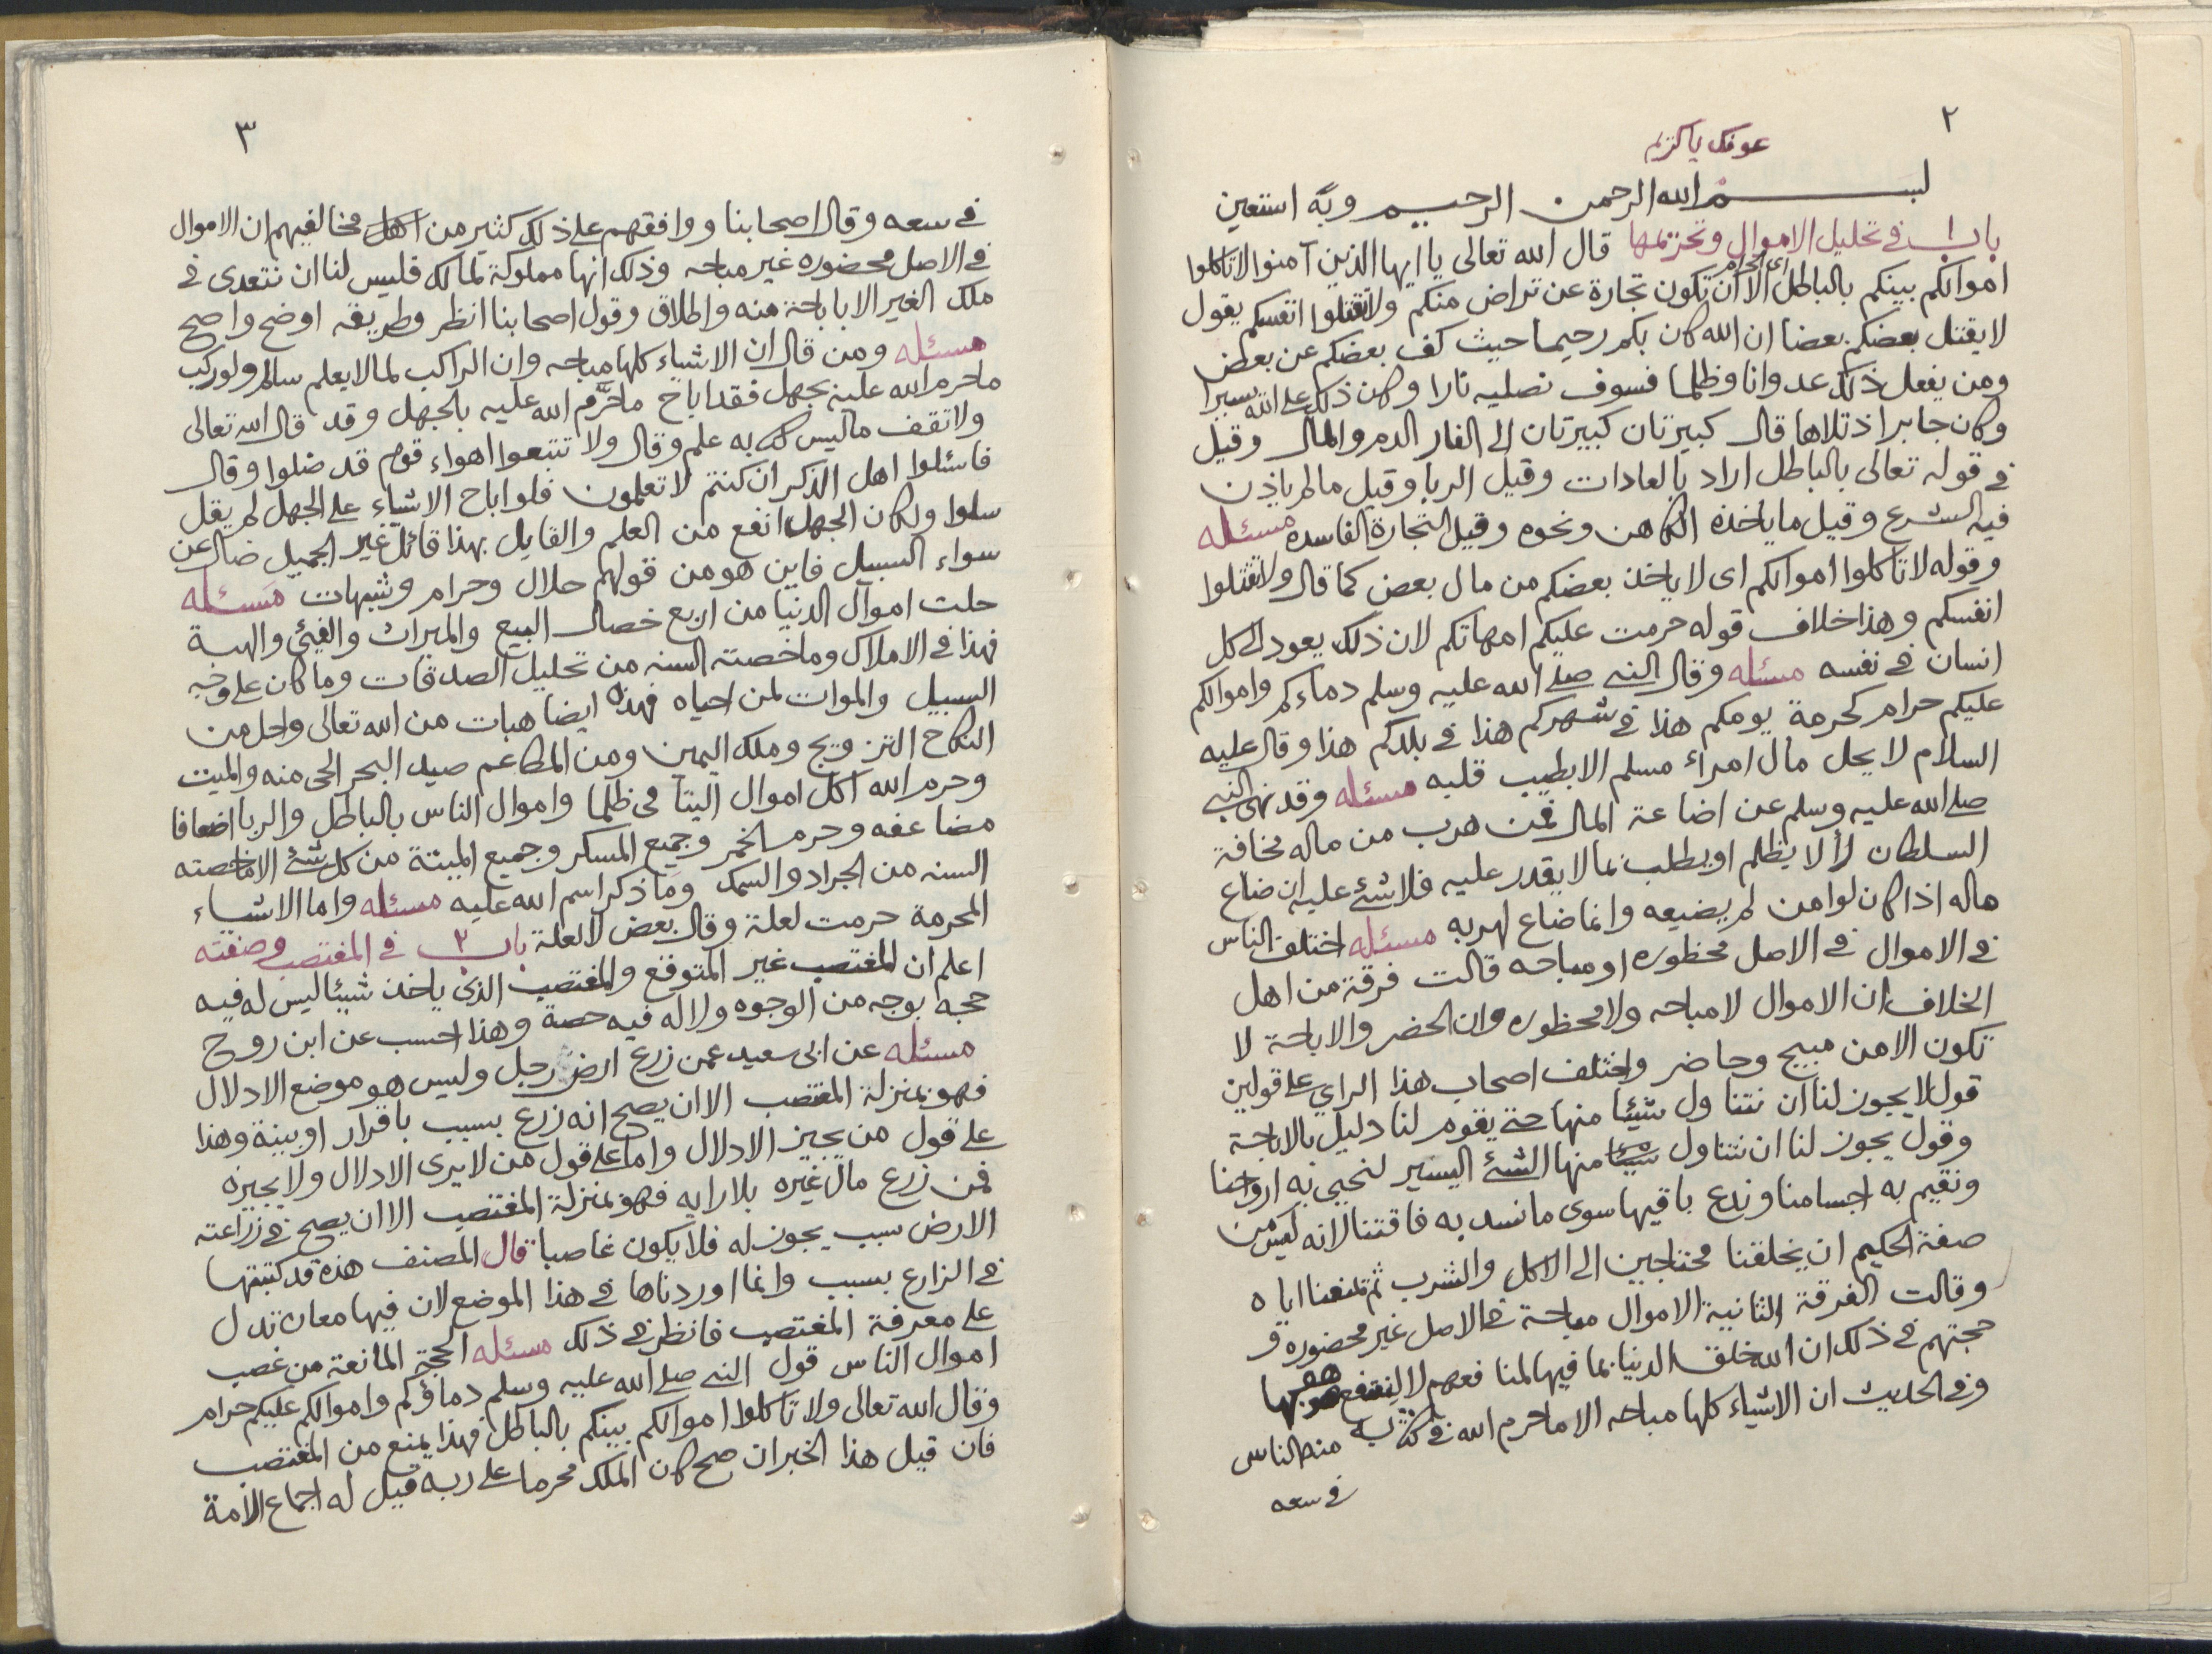 ٢
عونك يا كريم
بسم الله الرحمن الرحيم وبه استعين
باب ١ في تحليل الاموال وتحريمها قال الله تعالى يا ايها الذين آمنوا لا تاكلوا
اموالكم بينكم بالباطل اى الحرام الا ان تكون تجارة عن تراض منكم ولا تقتلوا انفسكم يقول
لا يقتل بعضكم بعضا ان الله كان بكم رحيما حيث كف بعضكم عن بعض
ومن يفعل ذلك عدوانا وظلما فسوف نصليه نارا وكان ذلك على الله يسيرا
وكان جابر اذ تلاها قال كبيرتان كبيرتان الى الفار الدم والمال وقيل
في قوله تعالى بالباطل اراد بالعادات وقيل الربا وقيل ما لم ياذن
فيه الشرع وقيل ما ياخذه الكاهن ونحوه وقيل التجارة الفاسده مسئله
وقوله لا تاكلوا اموالكم اى لا ياخذ بعضكم من مال بعض كما قال ولا تقتلوا
انفسكم وهذا خلاف قوله حرمت عليكم امهاتكم لان ذلك يعود الى كل
انسان في نفسه مسئله وقال النبي صلى الله عليه وسلم دماءكم واموالكم
عليكم حرام كحرمة يومكم هذا في شهركم هذا في بلدكم هذا وقال عليه
السلام لا يحل مال امراء مسلم الا بطيب قلبه مسئله وقد نهى النبي
صلى الله عليه وسلم عن اضاعة المال فمن هرب من ماله مخافة
السلطان لألا يظلم او يطلب بما لا يقدر عليه فلا شئ عليه ان ضاع
ماله اذا كان لوامن لم يضيعه وانما ضاع لهربه مسئله اختلف الناس
في الاموال في الاصل محظوره او مباحه قالت فرقة من اهل
الخلاف ان الاموال لا مباحه ولا محظوره وان الحضر والاباحة لا
تكون الا من مبيح وحاضر واختلف اصحاب هذا الراي على قولين
قول لا يجوز لنا ان نتناول شيئا منها حتى يقوم لنا دليل بالاباحة
وقول يجوز لنا ان نتناول شيئا منها الشئ اليسير لنحيي به ارواحنا
ونقيم به اجسامنا وندع باقيها سوى ما نسد به فاقتنا لانه ليس من
صفة الحكيم ان يخلقنا محتاجين الى الاكل والشرب ثم تمنعنا اياه
وقالت الفرقة الثانية الاموال مباحة في الاصل غير محضوره و
حجتهم في ذلك ان الله خلق الدنيا بما فيها لمنافعهم لا لينتفع هو بها
وفي الحديث ان الاشياء كلها مباحه الا ما حرم الله في كتابه منه الناس
في سعه
٣
في سعه وقال اصحابنا ووافقهم على ذلك كثير من اهل مخالفيهم ان الاموال
في الاصل محضوره غير مباحه وذلك انها مملوكة لمالك فليس لنا ان نتعدى في
ملك الغير الا باباحة منه واطلاق وقول اصحابنا انظر وطريقه اوضح واصح
مسئله ومن قال ان الاشياء كلها مباحه وان الراكب لما لا يعلم سالم ولو ركب
ما حرم الله عليه بجهل فقد اباح ما حرّم الله عليه بالجهل وقد قال الله تعالى
ولا تقف ما ليس لك به علم وقال ولا تتبعوا اهواء قوم قد ضلوا وقال
فاسئلوا اهل الذكر ان كنتم لا تعلمون فلو اباح الاشياء على الجهل لم يقل
سلوا ولكان الجهل انفع من العلم والقايل بهذا قائل غير الجميل ضال عن
سواء السبيل فاين هو من قولهم حلال وحرام وشبهات مسئله
حلت اموال الدنيا من اربع خصال البيع والميراث والفيئ والهبة
فهذا في الاملاك وما خصته السنه من تحليل الصدقات وما كان على وجه
السبيل والموات لمن احياه فهذه ايضا هبات من الله تعالى واحل من
النكاح التزويج وملك اليمين ومن المطاعم صيد البحر الحي منه والميت
وحرم الله اكل اموال اليتامى ظلما واموال الناس بالباطل والربا اضعافا
مضاعفه وحرم الخمر وجميع المسكر وجميع الميتة من كل شئ الا ما خصته
السنه من الجراد والسمك وما ذكر اسم الله عليه مسئله واما الاشياء
المحرمة حرمت لعلة وقال بعض لا لعلة باب ٢ في المغتصب وصفته
اعلم ان المغتصب غير المتوقع والمغتصب الذي ياخذ شيئا ليس له فيه
حجه بوجه من الوجوه ولا له فيه حصة وهذا احسب عن ابن روح
مسئله عن ابى سعيد عمن زرع ارض رجل وليس هو موضع الادلال
فهو بمنزلة المغتصب الا ان يصح انه زرع بسبب باقرار او بينة وهذا
على قول من يجيز الادلال واما على قول من لا يرى الادلال ولا يجيزه
فمن زرع مال غيره بلا رايه فهو بمنزلة المغتصب الا ان يصح في زراعته
الارض سبب يجوز له فلا يكون غاصبا قال المصنف هذه قد كتبتها
في الزارع بسبب وانما اوردناها في هذا الموضع لان فيها معان تدل
على معرفة المغتصب فانظر في ذلك مسئله الحجة المانعة من غصب
اموال الناس قول النبي صلى الله عليه وسلم دماؤكم واموالكم عليكم حرام
وقال الله تعالى ولا تاكلوا اموالكم بينكم بالباطل فهذا يمنع من المغتصب
فان قيل هذا الخبر ان صح كان الملك محرما على ربه قيل له اجماع الامة